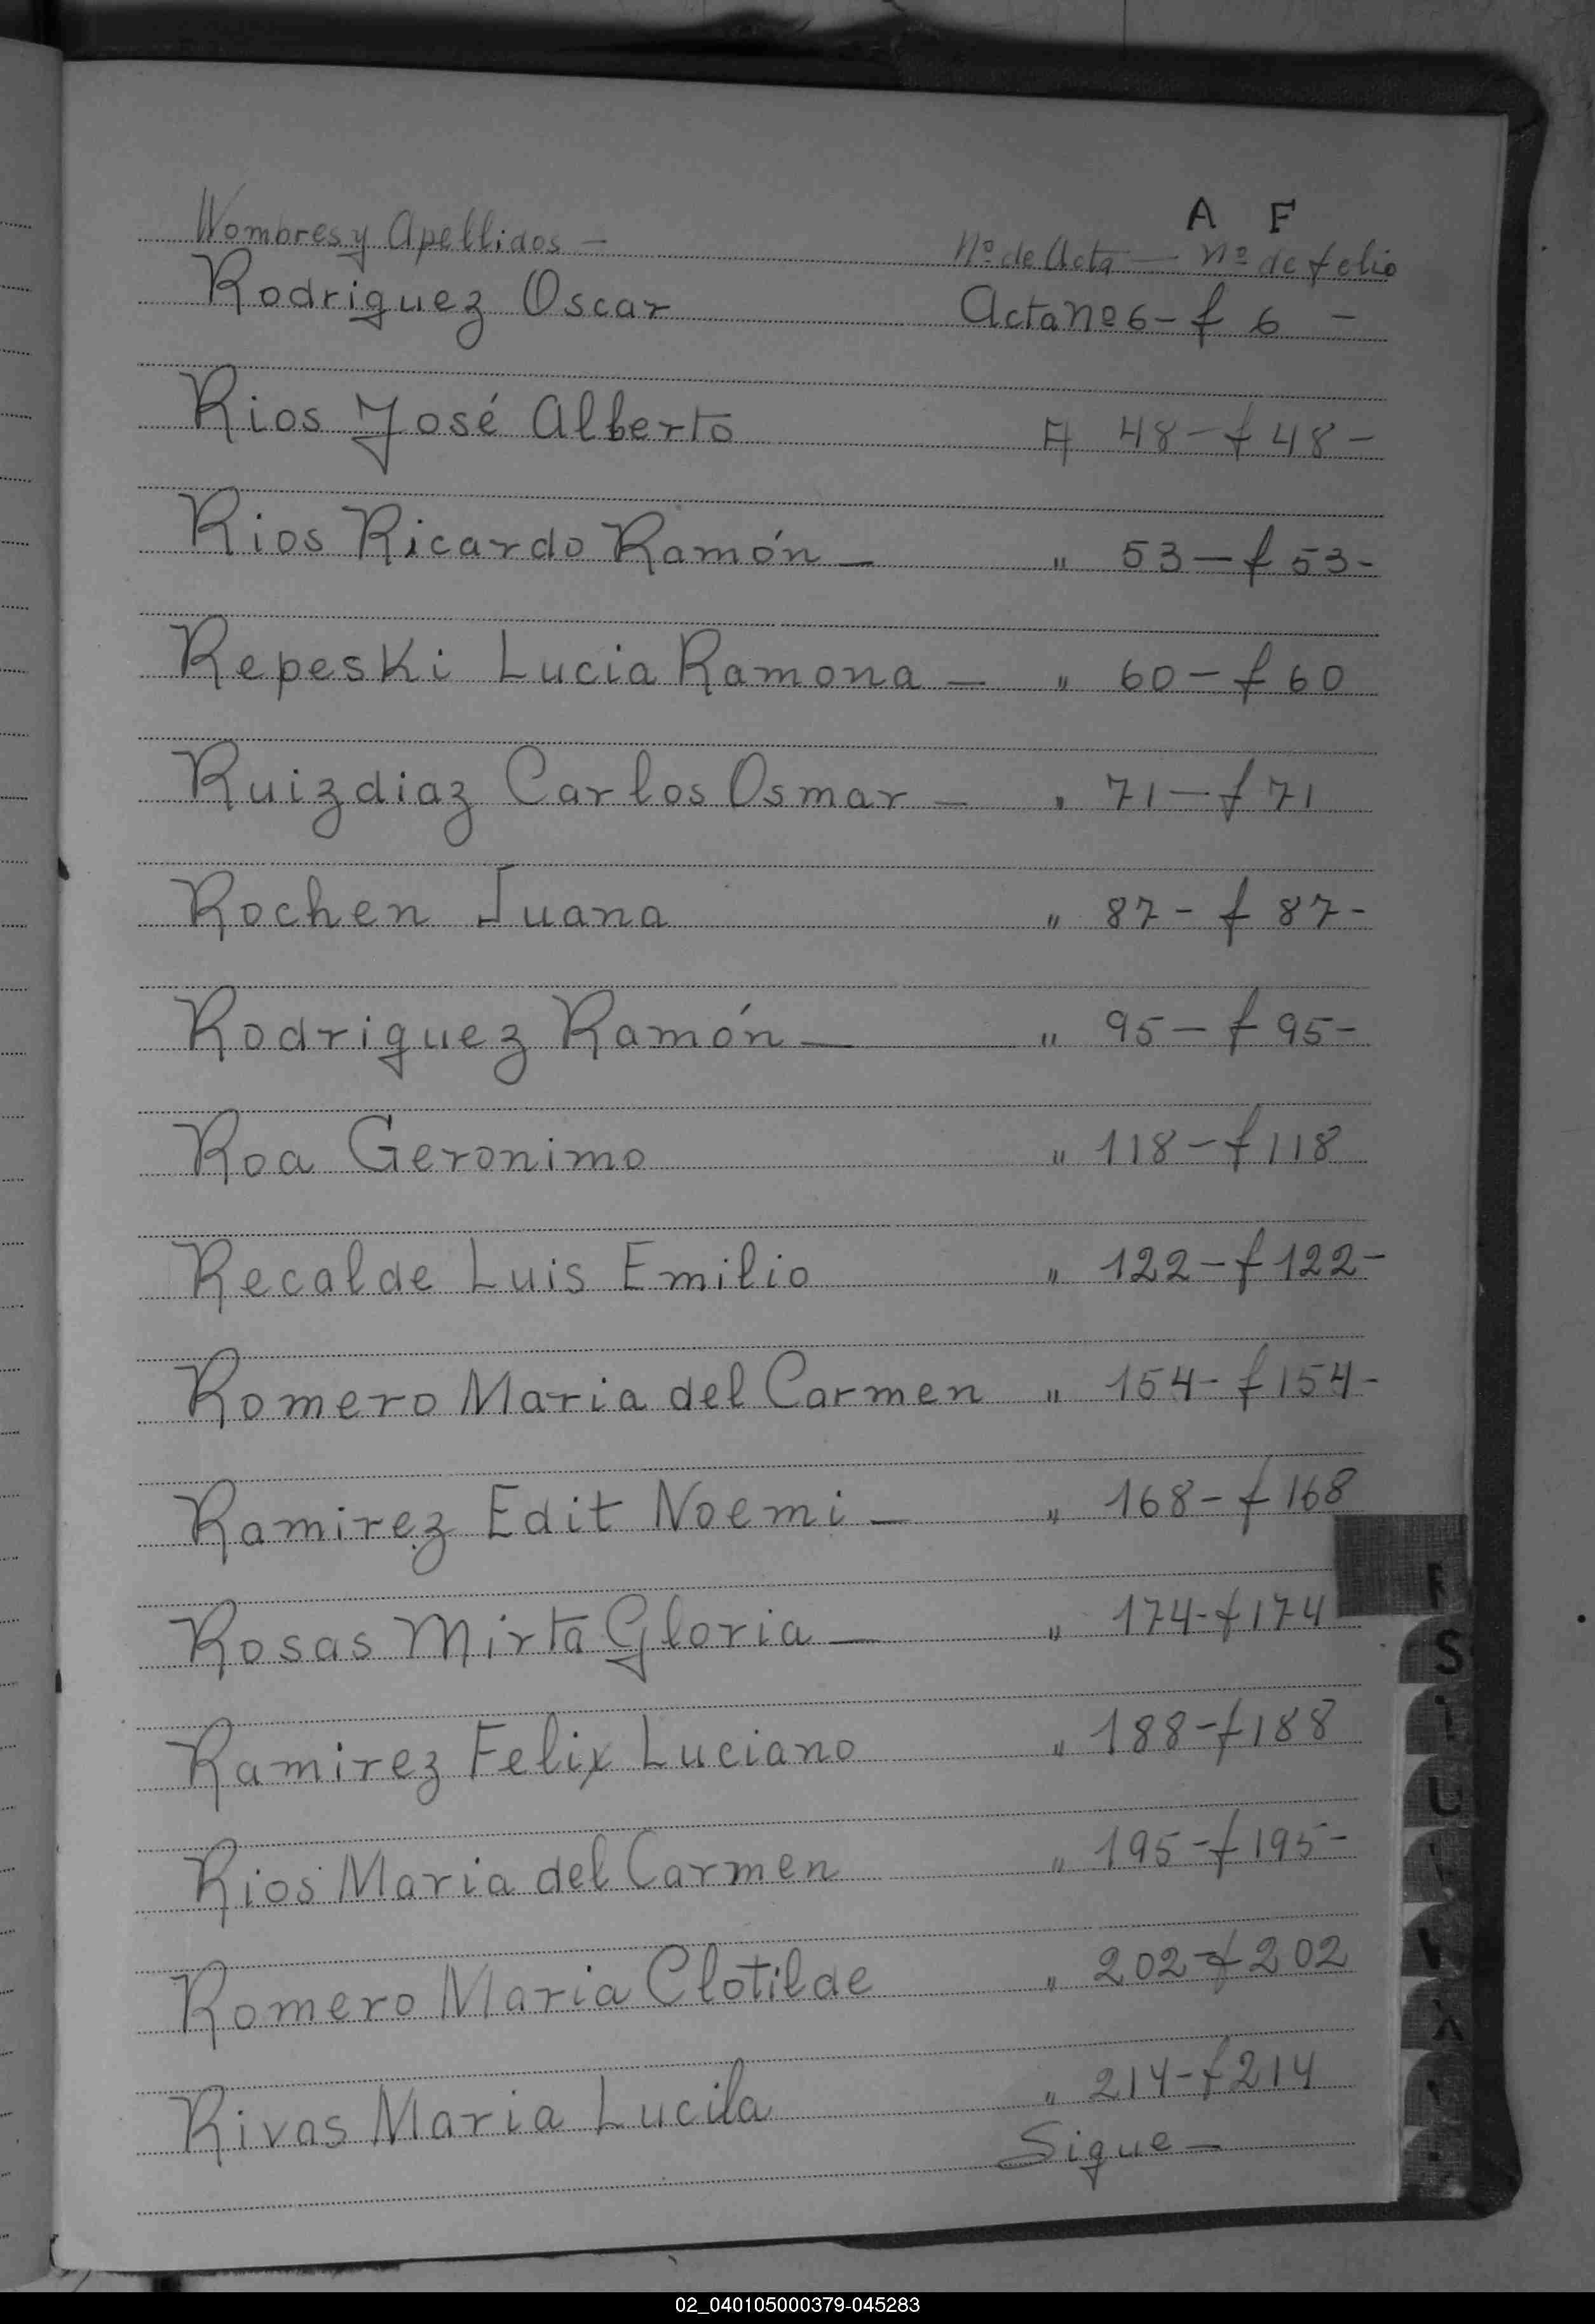 A F
Nombres y Apellidos — Nº de Acta — nº de folio
Rodriguez Oscar Acta nº 6 - f 6 -
Rios José Alberto A 48 - f 48 -
Rios Ricardo Ramón - " 53 - f 53 -
Repeski Lucia Ramona - " 60 - f 60
Ruizdiaz Carlos Osmar - " 71 - f 71
Rochen Juana " 87 - f 87 -
Rodriguez Ramón - " 95 - f 95 -
Roa Geronimo " 118 - f 118
Recalde Luis Emilio " 122 - f 122 -
Romero Maria del Carmen " 154 - f 154 -
Ramirez Edit Noemi - " 168 - f 168
Rosas Mirta Gloria - " 174 - f 174
Ramirez Felix Luciano " 188 - f 188
Rios Maria del Carmen " 195 - f 195 -
Romero Maria Clotilde " 202 - f 202
Rivas Maria Lucila " 214 - f 214
Sigue -
R
S
U
X
02_040105000379-045283